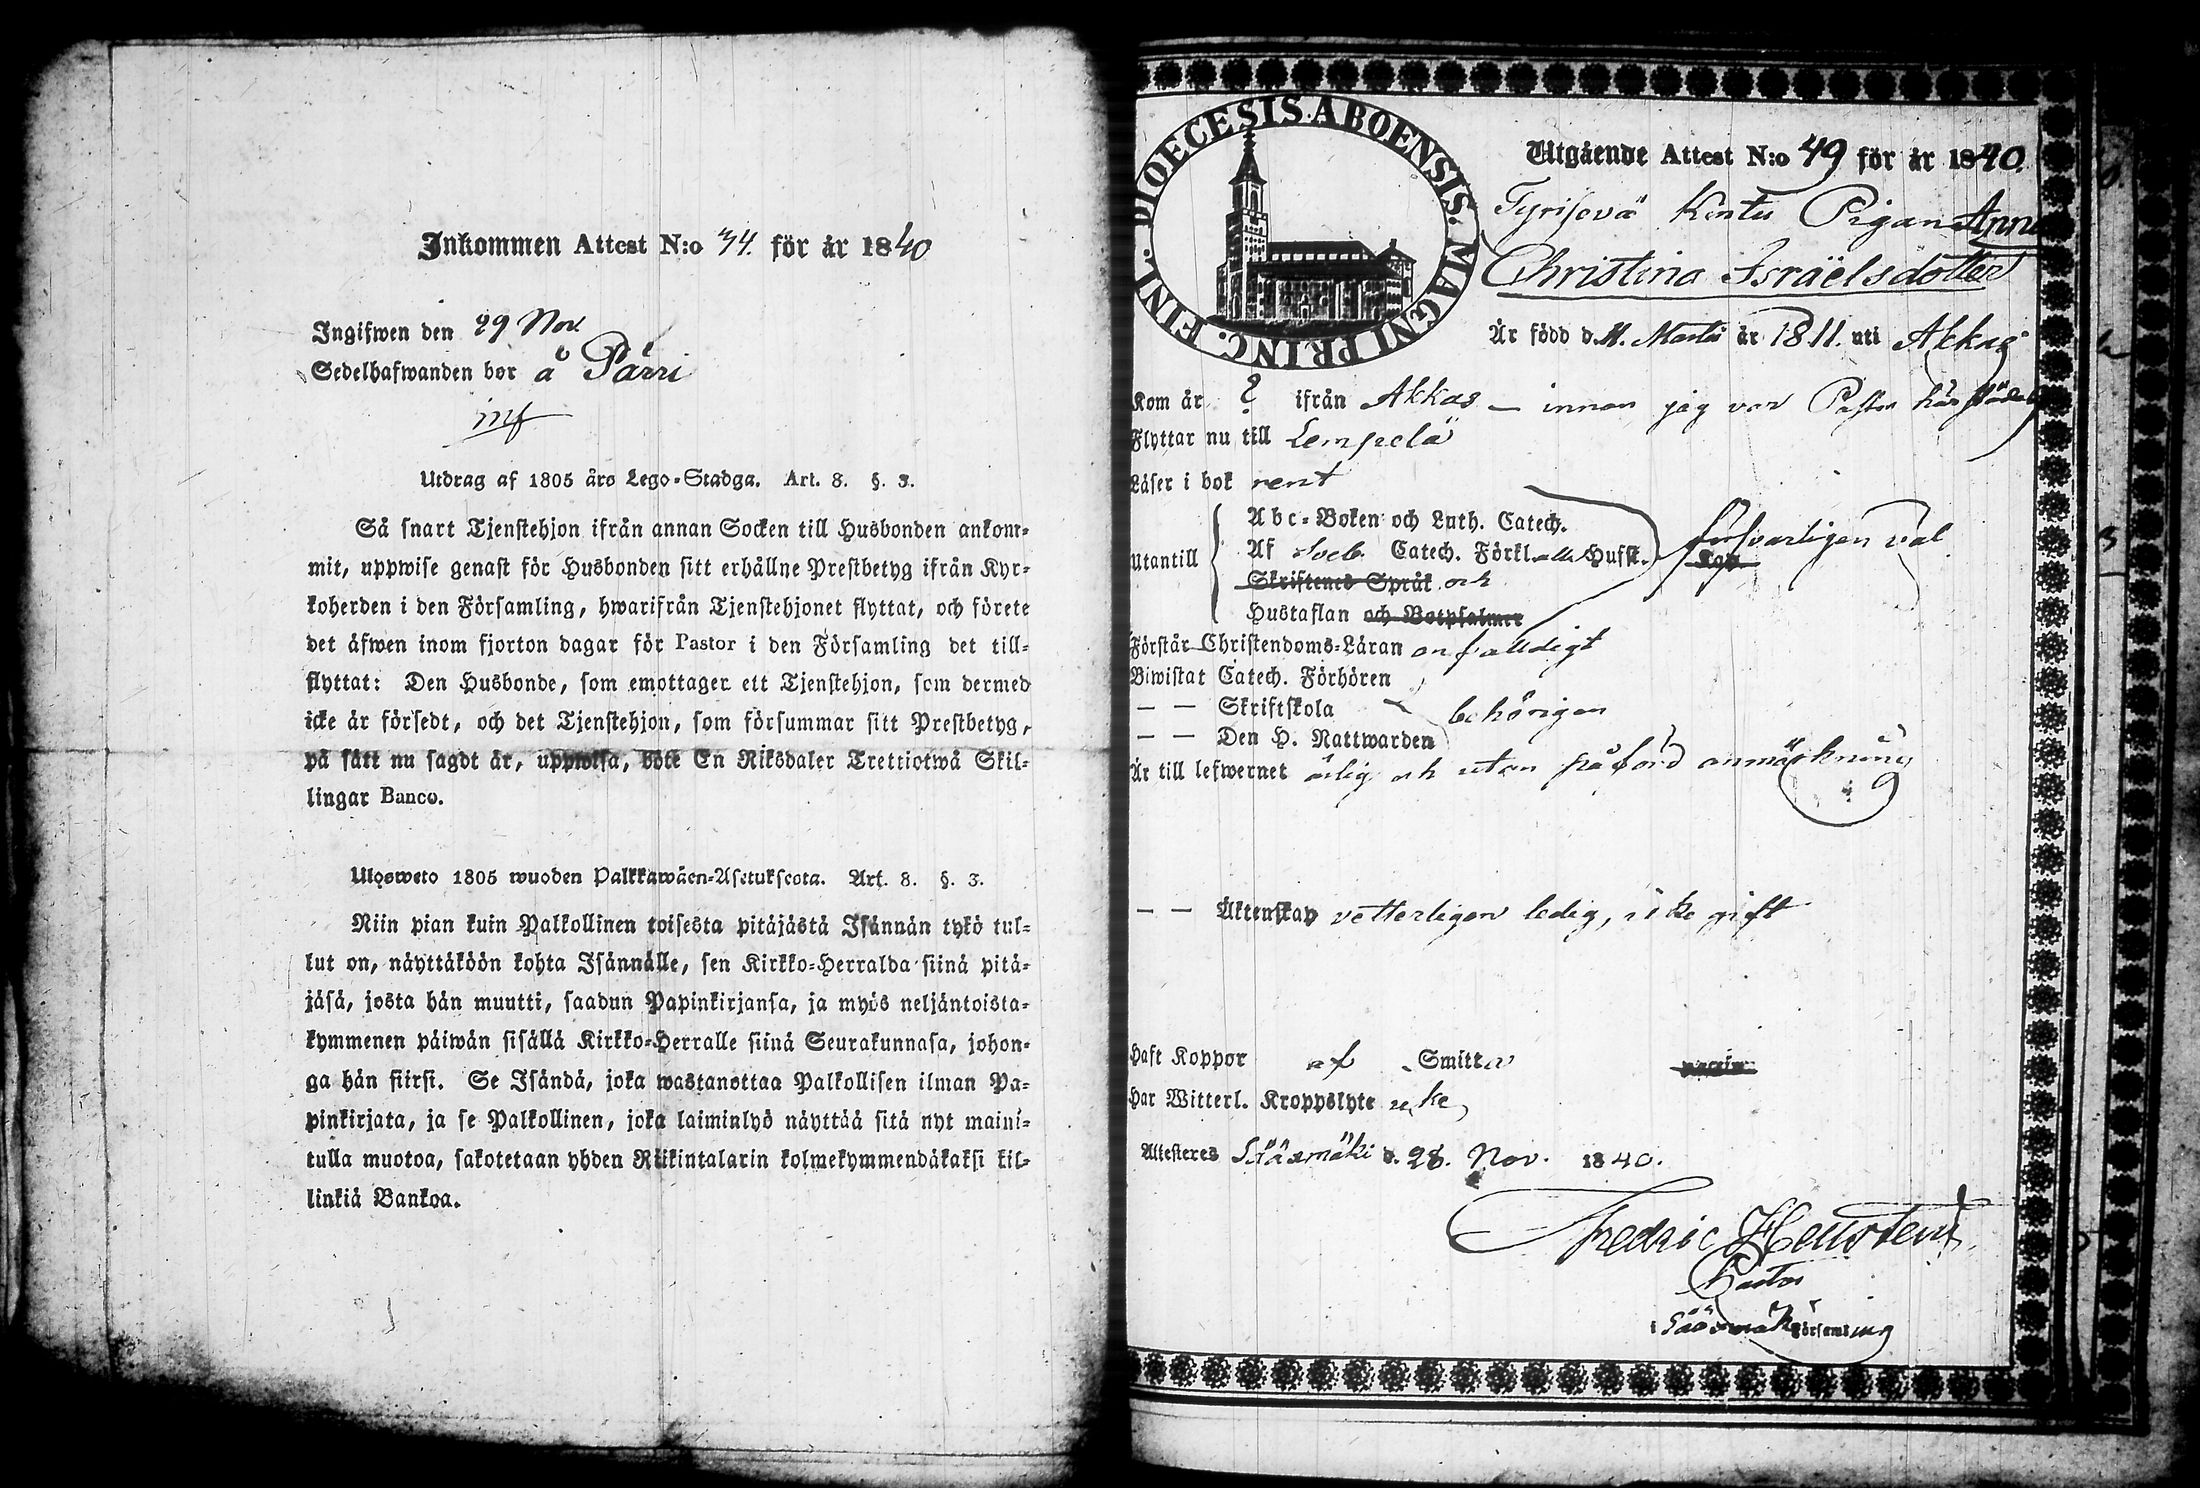 Inkommen Attest N:o 34. för år 1840
Ingifwen den 29 Nov.
Sedelhafwanden bor å Pärri
Utdrag af 1805 års Lego-Stadga. Art. 8. §. 3.
Så snart Tjenstehjon ifrån annan Socken till Husbonden ankom-
mit, uppwise genast för Husbonden sitt erhållne Prestbetyg ifrån Kyr-
koherden i den Församling, hwarifrån Tjenstehjonet flyttat, och förete
det äfwen inom fjorton dagar för Pastor i den Församling det till-
flyttat: Den Husbonde, som emottager ett Tjenstehjon, som dermed
icke är försedt, och det Tjenstehjon, som försummar sitt Prestbetyg,
på sätt nu sagdt är, uppwisa, böte En Riksdaler Trettiotwå Skil-
lingar Banco.
Ulosweto 1805 wuoden Palkkawäen-Asetuksesta. Art. 8. §. 3.
Niin pian kuin Palkollinen toisesta pitäjästä Isännän tykö tul-
lut on, näyttäköön kohta Isännälle, sen Kirkko-Herralda siinä pitä-
jäsä, josta hän muutti, saadun Papinkirjansa, ja myös neljäntoista-
kymmenen päiwän sisällä Kirkko-Herralle siinä Seurakunnasa, johon-
ga hän siirsi. Se Isändä, joka wastanottaa Palkollisen ilman Pa-
pinkirjata, ja se Palkollinen, joka laiminlyö näyttää sitä nyt maini-
tulla muotoa, sakotetaan yhden Riikintalarin kolmekymmendäkaksi kil-
linkiä Bankoa.
DIOECESIS ABOENSIS. MAGNI PRINC. FINL.
Utgående Attest N:o 49 för år 1840.
Pigan Anna
Christina Israëlsdotter
Är född d. 11. Martii år 1811. uti Akkas
Kom år ? ifrån Akkas — innan jag var Pastor härstädes
Flyttar nu till Lempelä
Läser i bok rent
Utantill
Abc-Boken och Luth. Catech.
Af Sveb. Catech. Förkl. alla Hufst. försvarligen väl
Skriftenes Språk och
Hustaflan och Botpsalmer
Förstår Christendoms-Läran enfaldigt
Biwistat Catech. Förhören
— — Skriftskola behörigen
— — Den H. Nattwarden
Är till lefwernet ärlig och utan påförd anmärkning
— — Äktenskap vetterligen ledig, icke gift
Haft Koppor af Smitta
Har Witterl. Kroppslyte icke
Attesteras Sääsmäki d. 28. Nov. 1840.
Fredric Hellstén
Pastor
i Sääsmäki Församling